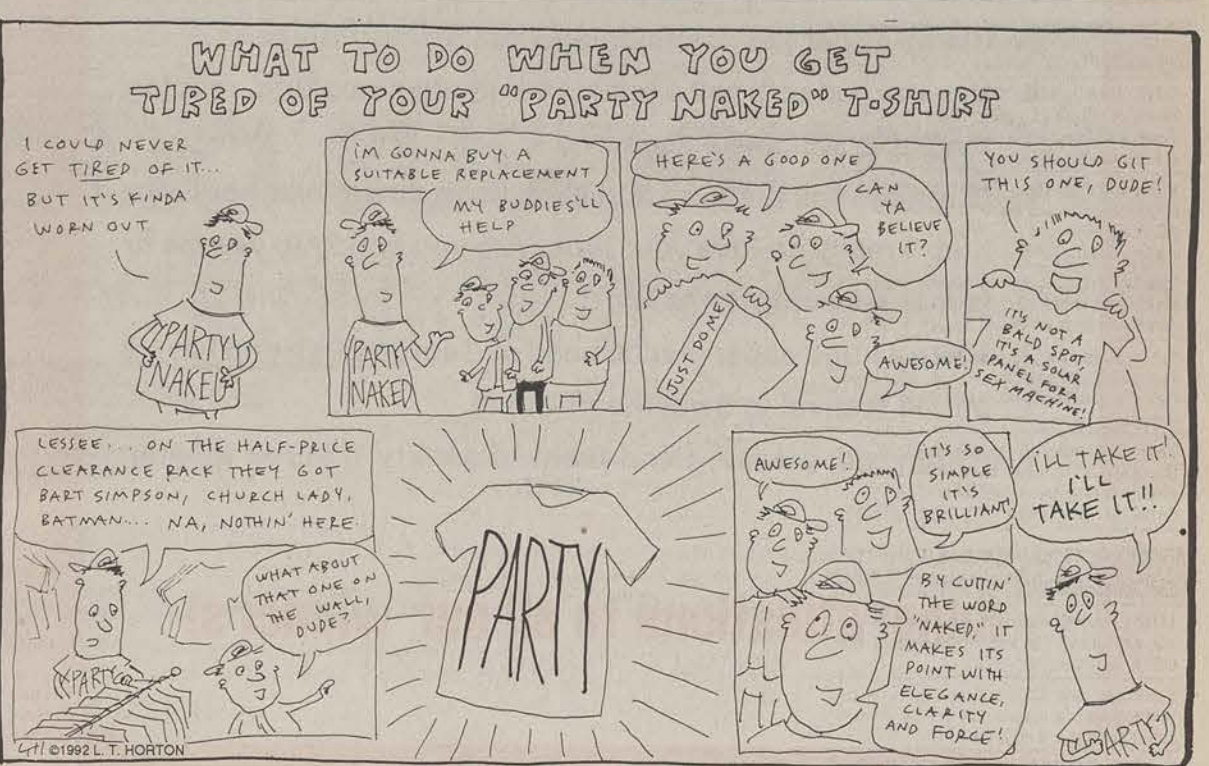 WHAT TO DO WHEN YOU GET
TIRED OF YOUR "PARTY NAKED" T-SHIRT
I COULD NEVER
GET TIRED OF IT...
BUT IT'S KINDA
WORN OUT
PARTY
NAKED
I'M GONNA BUY A
SUITABLE REPLACEMENT
MY BUDDIES'LL
HELP
PARTY
NAKED
HERE'S A GOOD ONE
CAN
YA
BELIEVE
IT?
JUST DO ME
AWESOME!
YOU SHOULD GIT
THIS ONE, DUDE!
IT'S NOT A
BALD SPOT,
IT'S A SOLAR
PANEL FOR A
SEX MACHINE!
LESSEE... ON THE HALF-PRICE
CLEARANCE RACK THEY GOT
BART SIMPSON, CHURCH LADY,
BATMAN... NA, NOTHIN' HERE.
WHAT ABOUT
THAT ONE ON
THE WALL,
DUDE?
PARTY
©1992 L. T. HORTON
PARTY
AWESOME!
IT'S SO
SIMPLE
IT'S
BRILLIANT!
BY CUTTIN'
THE WORD
"NAKED," IT
MAKES ITS
POINT WITH
ELEGANCE,
CLARITY
AND FORCE!
I'LL TAKE IT!
I'LL
TAKE IT!!
PARTY